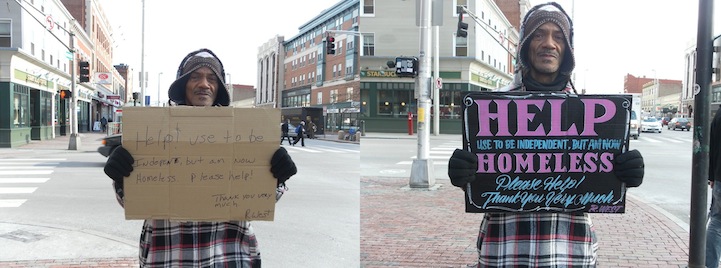 Help! use to be
Indepent, but am now
Homeless Please help!
Thank you very
much
R. West
STARBUCKS
HELP
USE TO BE INDEPENDENT, BUT AM NOW
HOMELESS
Please Help!
Thank You Very Much
R. WEST